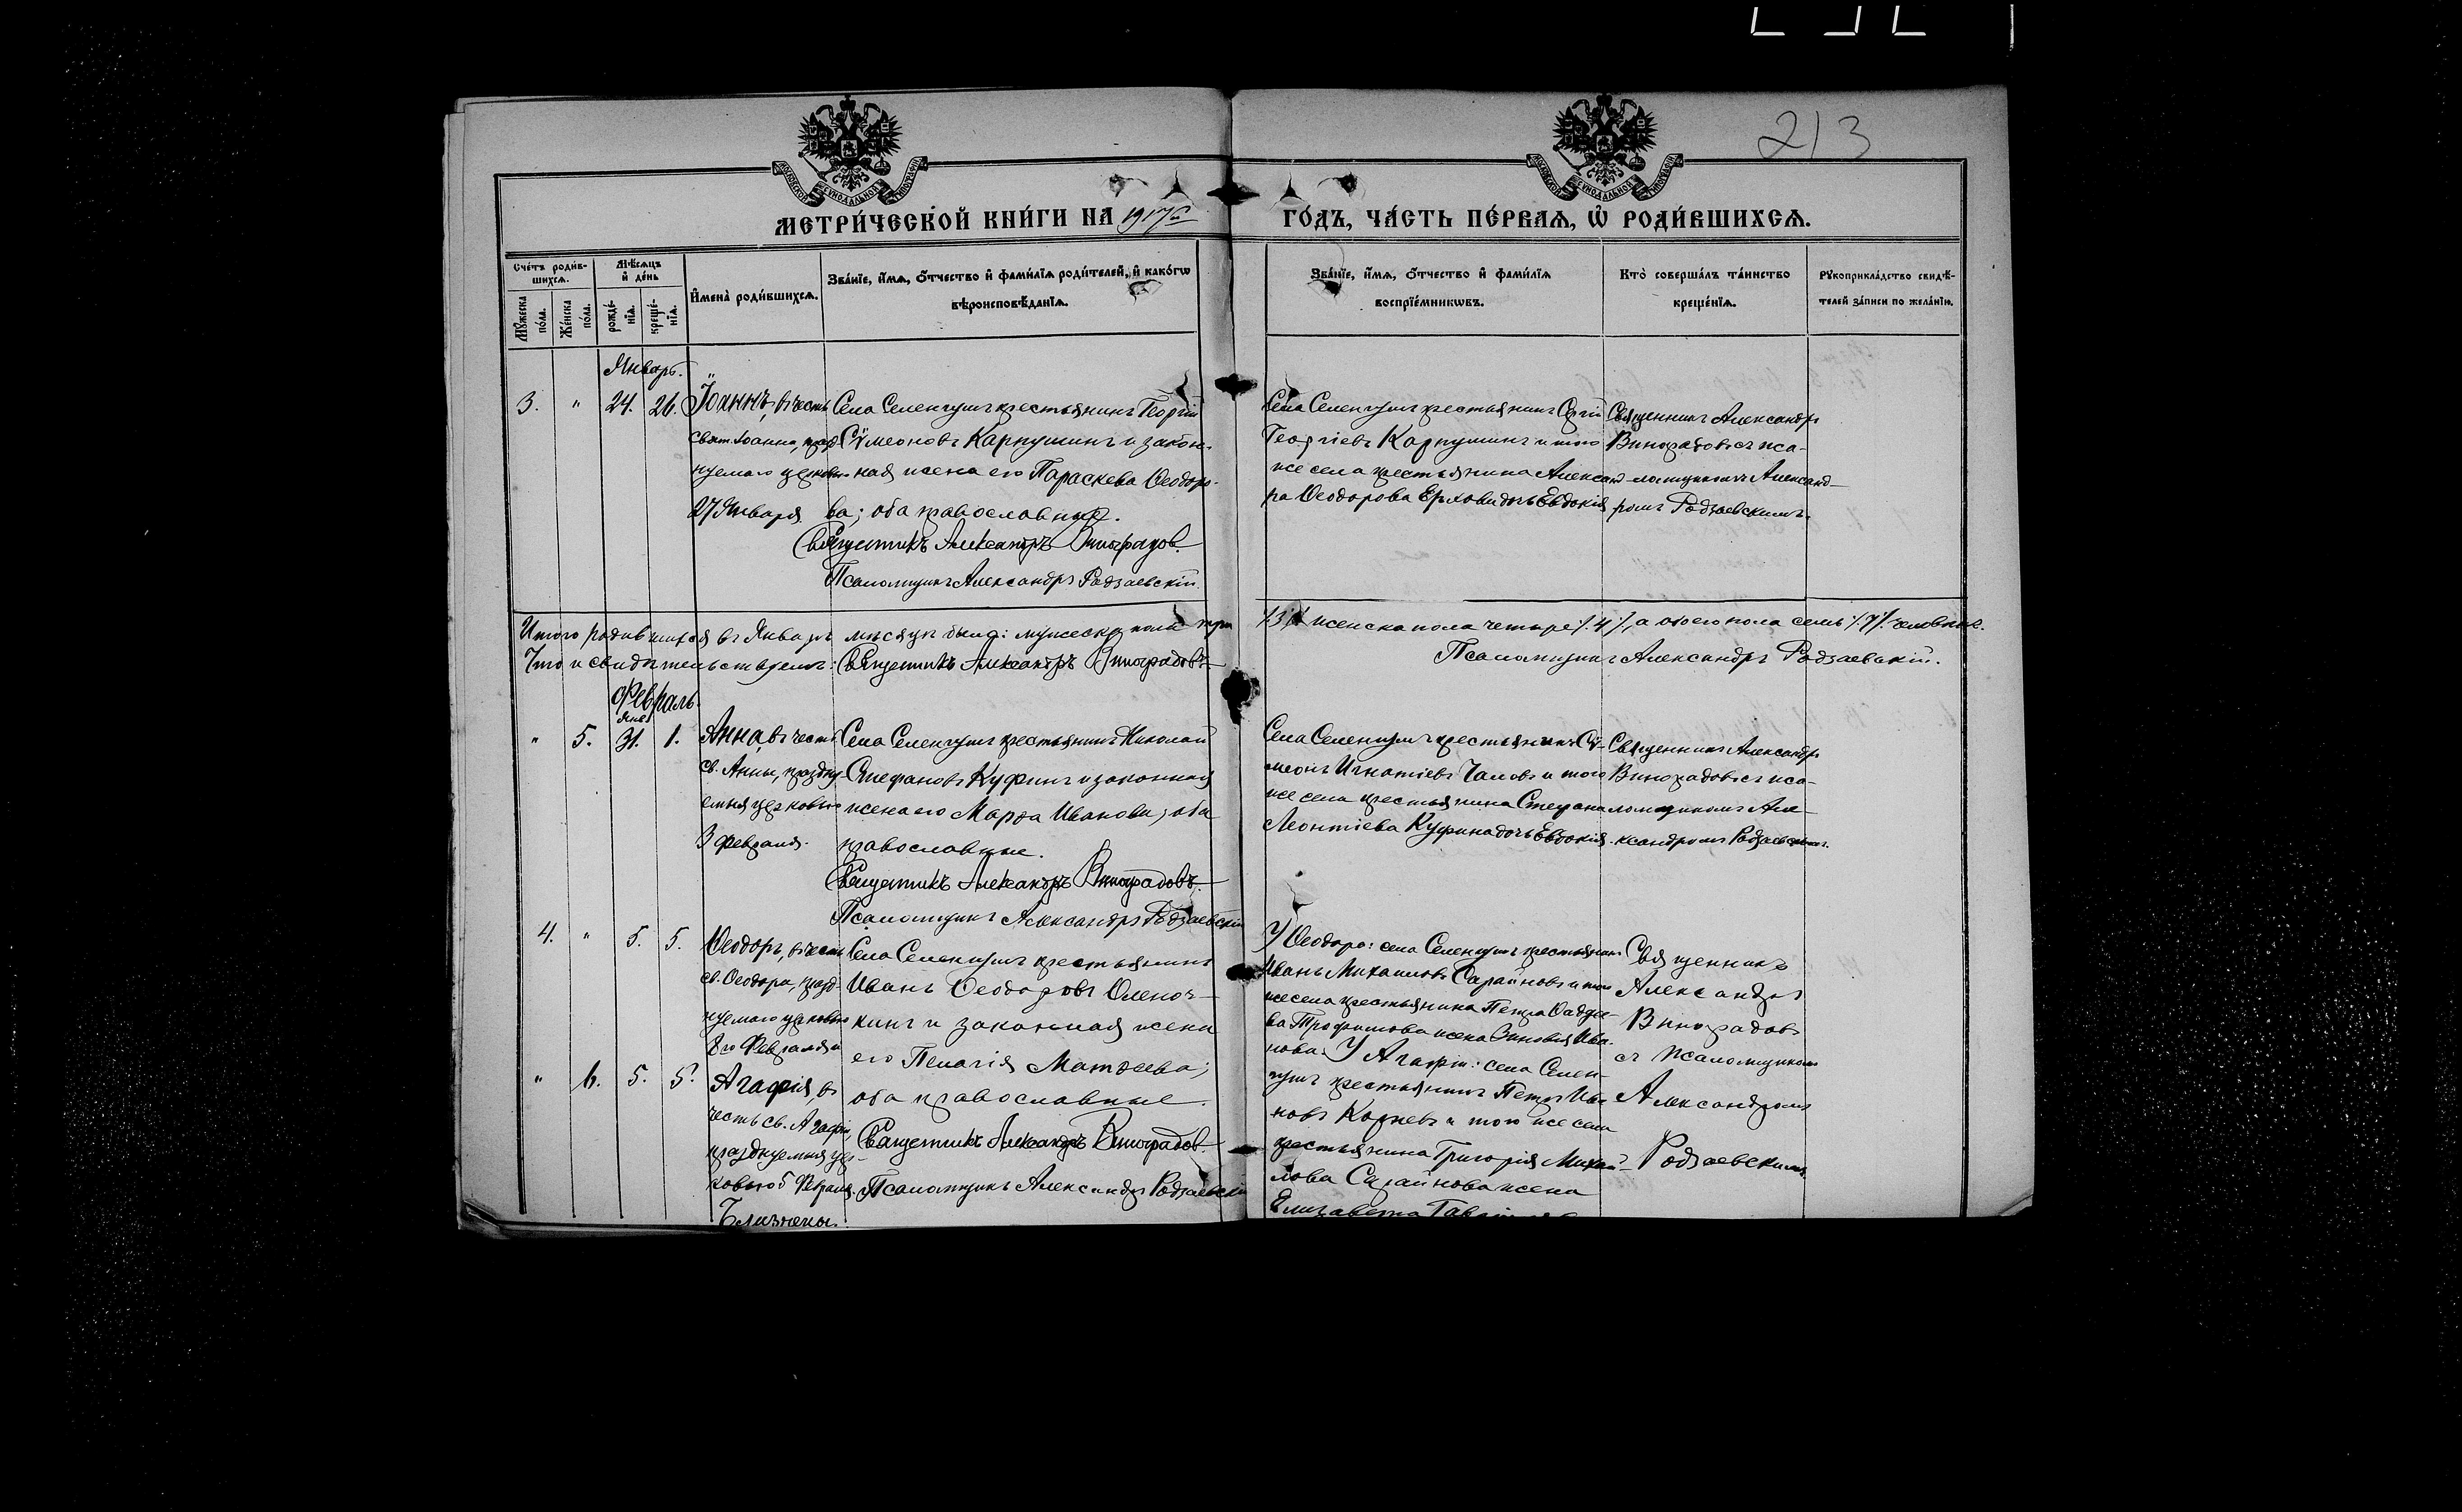 213
МЕТРИ́ЧЕСКОЙ КНИ́ГИ НА 1917 г.
ГО́ДЪ, ЧА́СТЬ ПЕ́РВАЯ, Ѡ҆ РОДИ́ВШИХСѦ.
Сче́тъ роди́в-
шихсѧ.
Мꙋ́жеска
по́ла.
Же́нска
по́ла.
Мѣ́сѧцъ
и҆ де́нь
рожде́-
нїѧ.
креще́-
нїѧ.
И҆мена̀ роди́вшихсѧ.
Зва́нїе, и҆́мѧ, ѻ҆́тчество и҆ фами́лїѧ роди́телей, и҆ како́гѡ
вѣроисповѣ́данїѧ.
Зва́нїе, и҆́мѧ, ѻ҆́тчество и҆ фами́лїѧ
воспрїе́мникѡвъ.
Кто̀ соверша́лъ та́инство
креще́нїѧ.
Рꙋкоприкла́дство свидѣ́-
телей за́писи по жела́нїю.
Январь.
3. " 24. 26.
Іоаннъ, въ честь
свят. Іоанна, празд-
нуемаго церковью
27 Января.
Села Селенгушъ крестьянинъ Георгій
Сѵмеоновъ Карпушинъ и закон-
ная жена его Параскева Ѳеодоро-
ва; оба православные.
Священникъ Александръ Виноградов.
Псаломщикъ Александръ Радзаевскій.
Села Селенгушъ крестьянинъ Сергій
Георгіевъ Карпушинъ и того
же села крестьянина Алексан-
ра Ѳеодорова Ерхова дочь Евдокія
Священникъ Александръ
Виноградовъ съ пса-
ломщикомъ Александ-
ромъ Радзаевскимъ.
Итого родившихся въ Январѣ мѣсяцѣ было: мужеска пола три
/3/ женска пола четыре /4/, а обоего пола семь /7/ человѣкъ.
Что и свидѣтельствуемъ: Священникъ Александръ Виноградовъ
Псаломщикъ Александръ Радзаевскій.
Февраль.
Янв.
" 5. 31. 1.
Анна, въ честь
св. Анны, праздну-
емыя церковью
3 февраля.
Села Селенгушъ крестьянинъ Николай
Стефановъ Куфинъ и законная
жена его Марѳа Иванова; оба
православные.
Священникъ Александръ Виноградовъ.
Псаломщикъ Александръ Радзаевскій
Села Селенгушъ крестьянинъ Сѵ-
меонъ Игнатіевъ Чамовъ и того
же села крестьянина Стефана
Леонтіева Куфина дочь Евдокія.
Священникъ Александръ
Виноградовъ съ пса-
ломщикомъ Але-
ксандромъ Радзаевскимъ.
4. " 5. 5.
Ѳеодоръ, въ честь
св. Ѳеодора, празд-
нуемаго церковью
8го Февраля
Села Селенгушъ крестьянинъ
Иванъ Ѳеодоровъ Оленоч-
кинъ и законная жена
его Пелагія Матѳеева;
оба православные.
Священникъ Александръ Виноградов.
Псаломщикъ Александръ Радзаевскій
У Ѳеодора: села Селенгушъ крестьянинъ
Иванъ Михаиловъ Сарайновъ и того
же села крестьянина Петра Ѳадде-
ва Трофимова жена Зиновія Ива-
нова. У Агафіи: села Селен-
гушъ крестьянинъ Петръ Ива-
новъ Корневъ и того же села
крестьянина Григорія Михаи-
лова Сарайнова жена
Елизавета
Священникъ
Александръ
Виноградовъ
съ псаломщикомъ
Александромъ
Радзаевскимъ.
" 6. 5. 5.
Агафія, въ
честь св. Агафіи,
празднуемыя цер-
ковью 5 Февраля.
Близнецы.